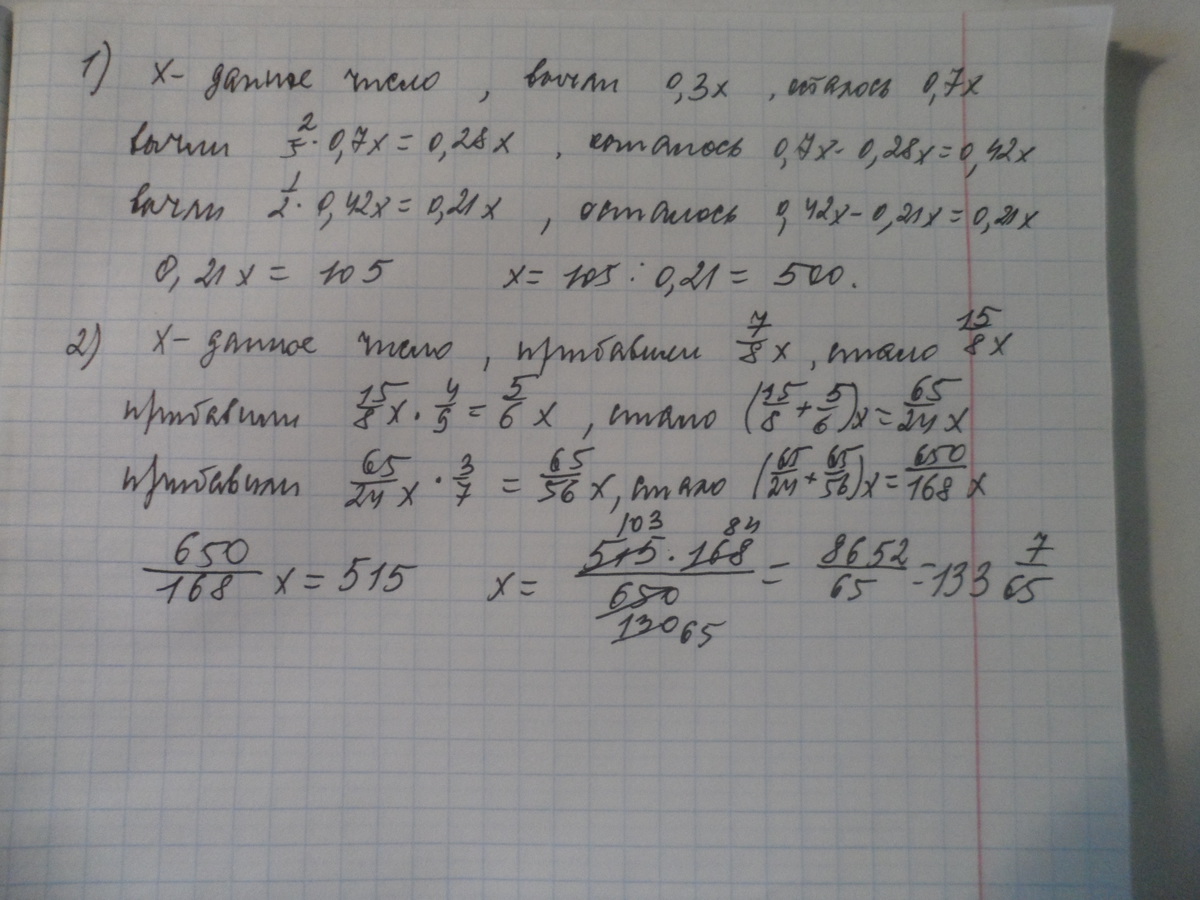 1) х- данное число, вычли 0,3х, осталось 0,7х
вычли 2/5 · 0,7х = 0,28х, осталось 0,7х - 0,28х = 0,42х
вычли 1/2 · 0,42х = 0,21х, осталось 0,42х - 0,21х = 0,21х
0,21х = 105 х = 105 : 0,21 = 500.
2) х- данное число, прибавили 7/8 х, стало 15/8 х
прибавили 15/8 х · 4/9 = 5/6 х, стало (15/8 + 5/6)х = 65/24 х
прибавили 65/24 х · 3/7 = 65/56 х, стало (65/24 + 65/56)х = 650/168 х
650/168 х = 515 х = 515 · 168 / 650 = 8652/65 = 133 7/65
103 84
130 65